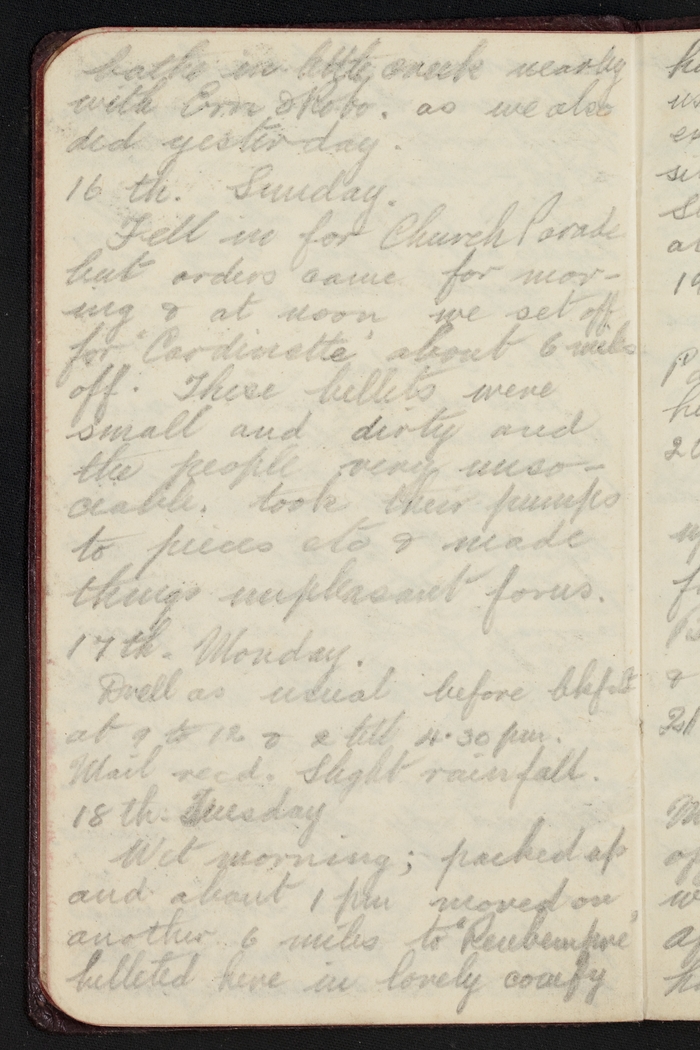 bathe in little creek nearby
with Ern & Robo. as we also
did yesterday.
16 th. Sunday.
Fell in for Church Parade
but orders came for mov-
ing & at noon we set off
for 'Cardinette' about 6 miles
off. These billets were
small and dirty and
the people very unso-
ciable. took their pumps
to pieces etc & made
things unpleasant for us.
17th. Monday.
Drell as usual before bkfst
at 9 to 12 & 2 till 4.30 pm.
Mail recd. Slight rainfall.
18th. Tuesday
Wet morning; packed up
and about 1 pm moved on
another 6 miles to 'Reubempre'
billeted here in lovely comfy